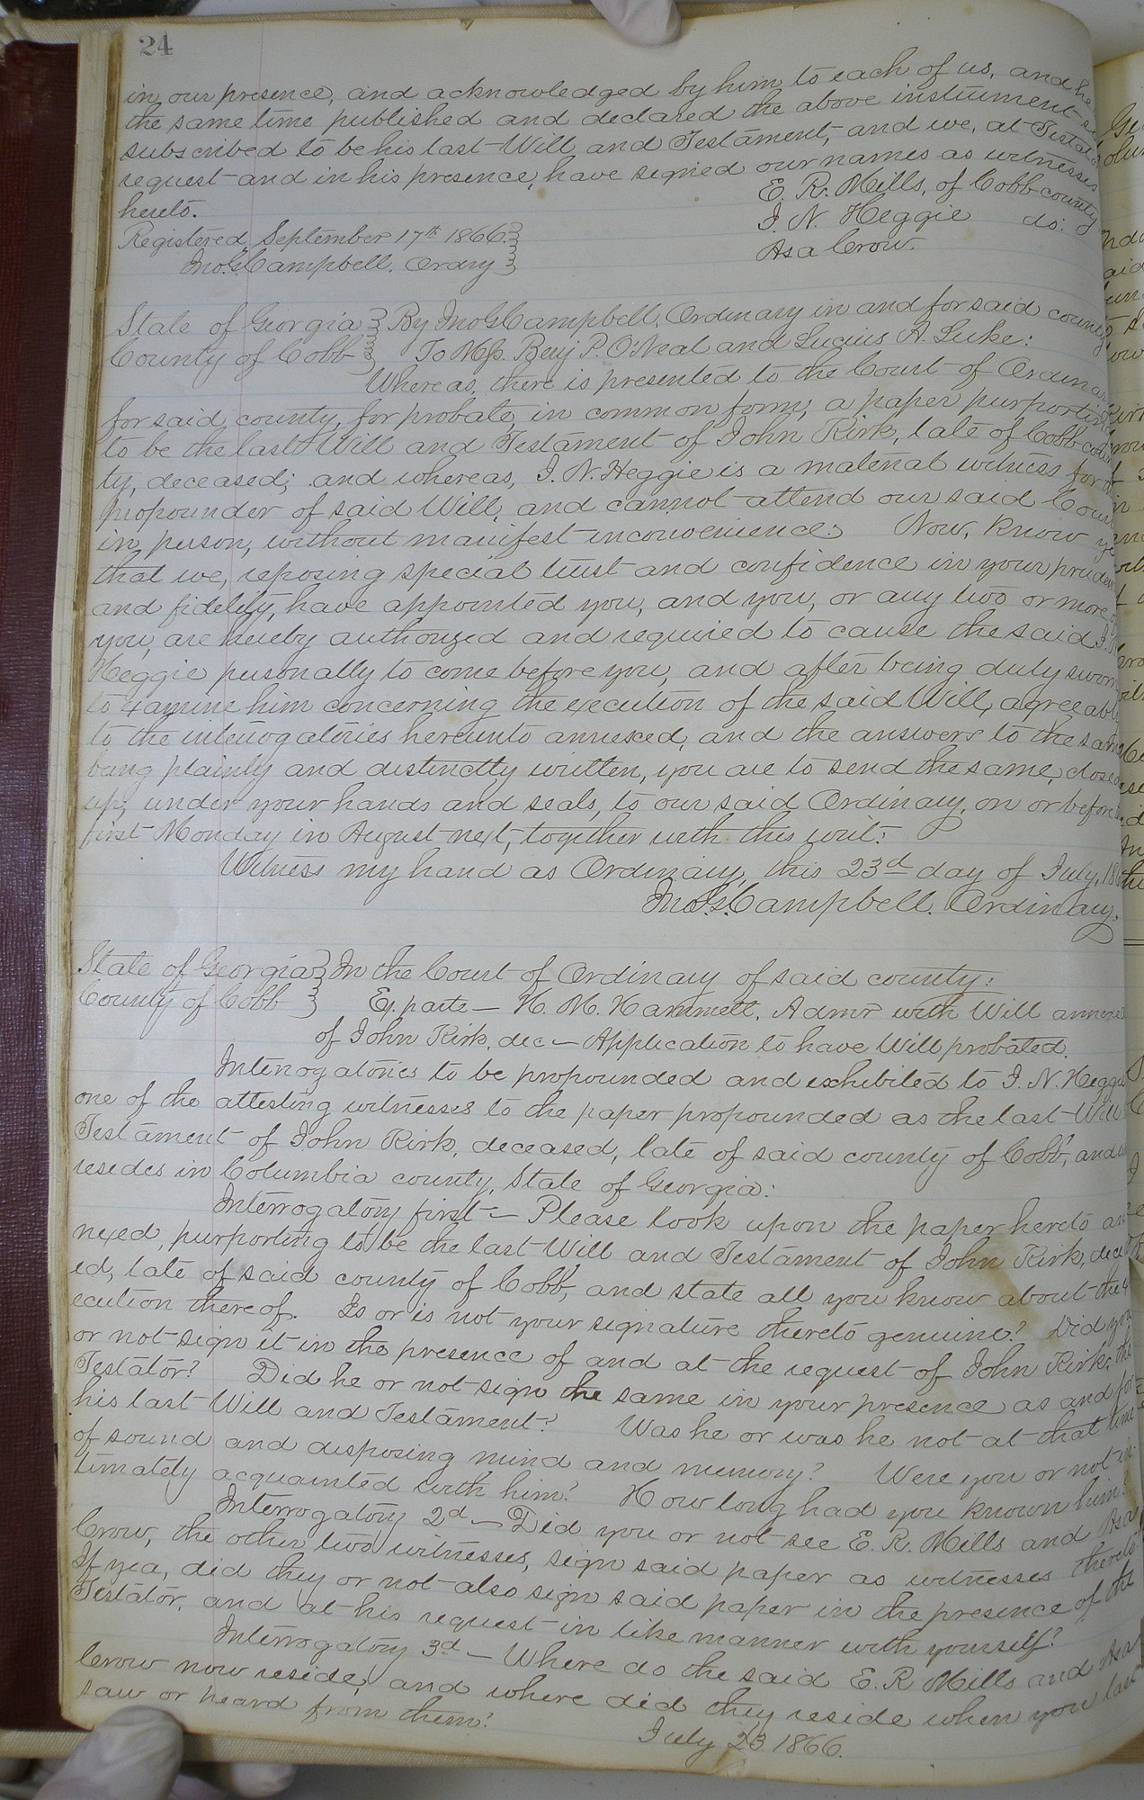 24
in our presence, and acknowledged by him to each of us, and he
the same time published and declared the above instrument so
subscribed to be his last Will and Testament, and we, at Testator
request and in his presence, have signed our names as witnesses
hereto. E. R. Mills, of Cobb county
I. N. Heggie do:
Asa Crow.
Registered September 17th 1866.
Jno. G. Campbell. Ordary
State of Georgia } By Jno G Campbell, Ordinary in and for said county
County of Cobb } To Mess. Benj P. O'Neal and Lucius A. Luke:
Whereas, there is presented to the Court of Ordinary
for said county, for probate, in common form, a paper purporting
to be the last Will and Testament of John Kirk, late of Cobb coun
ty, deceased; and whereas, I. N. Heggie is a material witness for
propounder of said Will, and cannot attend our said Court
in person, without manifest inconvenience: Now, know ye
that we, reposing special trust and confidence in your pruden
and fidelity, have appointed you, and you, or any two or more
you, are hereby authorized and required to cause the said I. N.
Heggie personally to come before you, and after being duly sworn
to examine him concerning the execution of the said Will, agreeabl
to the interrogatories hereunto annexed, and the answers to the same
being plainly and distinctly written, you are to send the same, closed
up, under your hands and seals, to our said Ordinary, on or before
first Monday in August next, together with this writ:
Witness my hand as Ordinary, this 23d day of July, 18
Jno. G. Campbell. Ordinary.
State of Georgia } In the Court of Ordinary of said county:
County of Cobb } Ex parte — H. M. Hammett, Admr with Will annexed
of John Kirk, dec — Application to have Will probated.
Interrogatories to be propounded and exhibited to I. N. Heggie
one of the attesting witnesses to the paper propounded as the last Will
Testament of John Kirk, deceased, late of said county of Cobb, and
resides in Columbia county, State of Georgia:
Interrogatory first — Please look upon the paper hereto an
nexed, purporting to be the last Will and Testament of John Kirk, deceas
ed, late of said county of Cobb, and state all you know about the ex
ecution thereof. Is or is not your signature thereto genuine? Did you
or not sign it in the presence of and at the request of John Kirk, the
Testator? Did he or not sign the same in your presence as and for
his last Will and Testament? Was he or was he not at that time
of sound and disposing mind and memory? Were you or not in
timately acquainted with him? How long had you known him?
Interrogatory 2d — Did you or not see E. R. Mills and Asa
Crow, the other two witnesses, sign said paper as witnesses thereto
If yea, did they or not also sign said paper in the presence of the
Testator, and at his request in like manner with yourself?
Interrogatory 3d — Where do the said E. R Mills and Asa
Crow now reside, and where did they reside when you last
saw or heard from them?
July 23 1866.